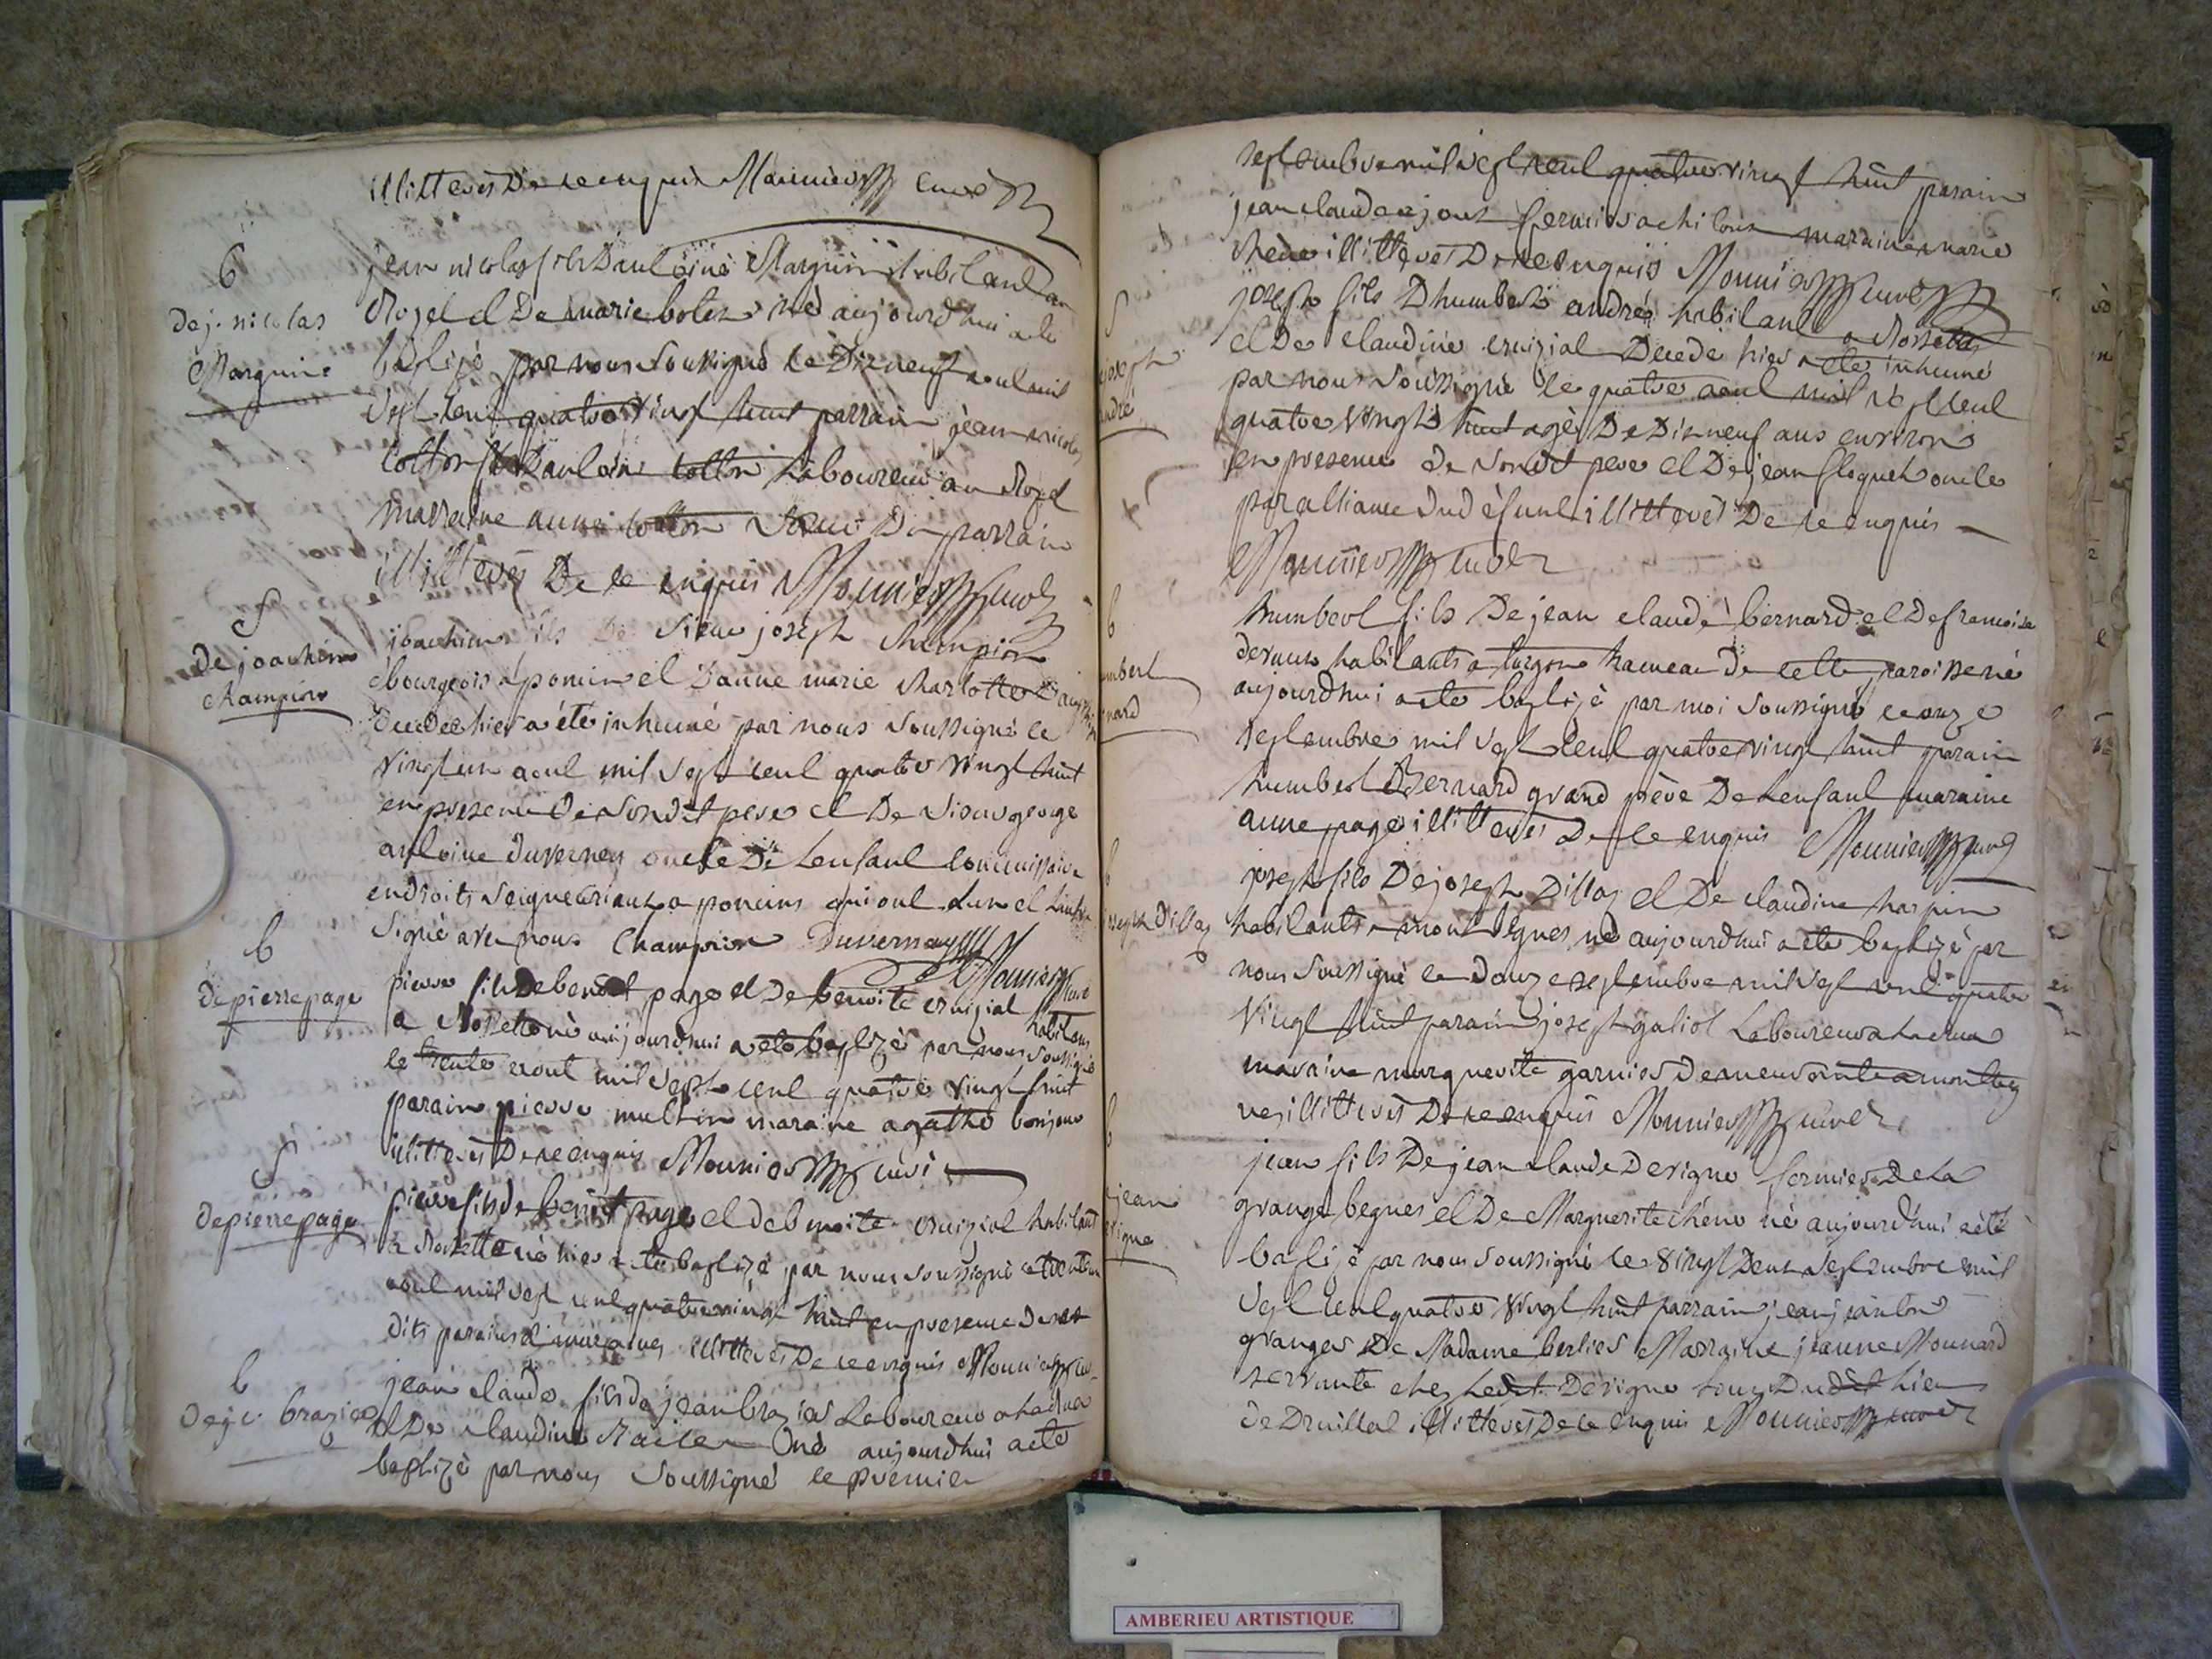 illitteres De ce enquis Mounier curé
6
De j. nicolas
Marguin
jean nicolas fils D'antoine Marguin habitant au
Noyel et De marie botex né aujourdhui a ete
baptisé par nous Soussigné le Dix neuf aout mil
Sept Cent quatre vingt huit parrain jean nicolas
Cotton fils D'antoine Cotton Laboureur au Noyel
marraine anne Cotton Soeur Du parrain
illitteres De ce enquis Mounier curé
S
De joachim
champion
joachim fils De Sieur joseph Champion
bourgeois a poncin et D'anne marie Charlotte
Decedé hier a été inhumé par nous Soussigné le
Vingt un aout mil Sept cent quatre Vingt huit
en presence De Son dit pere et De Sieur george
antoine duverney oncle De Lenfant Commissaire
en droits Seigneuriaux a poncins qui ont Lun et Lautre
Signé avec nous Champion Duverney
Mounier curé
b
de pierre page
pierre fils De benoit page et De benoite cruizial habitans
a Nossette né aujourdhui a ete baptizé par nous Soussigné
le trente aout mil Sept cent quatre Vingt huit
parain pierre maraine agathe
illitteres De ce enquis Mounier curé
S
de pierre page
pierre fils de benoit page et de benoite cruizial habitant
a Nossette né hier a ete baptizé par nous Soussigné le
aout mil Sept cent quatre vingt huit en presence De
dits parains et maraines illitteres De ce enquis Mounier curé
b
De j. c. brazier
jean claude fils de jean brazier Laboureur a
et De claudine né aujourdhui a ete
baptizé par nous Soussigné le premier
septembre mil Sept cent quatre vingt huit parain
jean claude fermier a chiloux maraine marie
illitteres De ce enquis Mounier curé
S
joseph
andré
joseph fils D'humbert andré habitant a Nossette
et De claudine cruizial Decede hier a ete inhumé
par nous Soussigné le quatre aout mil Sept Cent
quatre Vingts huit agé De Dix neuf ans environ
en presence de Son dit pere et De jean floquet oncle
par alliance du defunt illitteres De ce enquis
Mounier curé
b
umbert
nard
humbert fils De jean claude bernard et De francoise
deraux habitants a turgon hameau De cette paroisse né
aujourdhui a ete baptizé par moi Soussigné le onze
septembre mil Sept Cent quatre vingt huit parain
humbert Bernard grand pere De Lenfant maraine
anne page illitteres De ce enquis Mounier curé
b
joseph Dillaz
joseph fils De joseph Dillaz et De claudine harpin
habitants a né aujourdhui a ete baptizé par
nous Soussigné le Douze septembre mil Sept cent quatre
Vingt huit parain joseph galiot Laboureur a
maraine marguerite garnier Demeurante a
illitteres De ce enquis Mounier curé
b
jean
erigne
jean fils De jean claude Derigne fermier De La
grange begues et De Marguerite chêne né aujourdhui a ete
baptizé par nous Soussigné le Vingt Deux Septembre mil
Sept Cent quatre Vingt huit parrain jean
granger De Madame berlier Marraine jeanne Monnard
servante chez Ledit Derigne tous Dudit lieu
de Druillat illitteres De ce enquis Mounier curé
AMBERIEU ARTISTIQUE